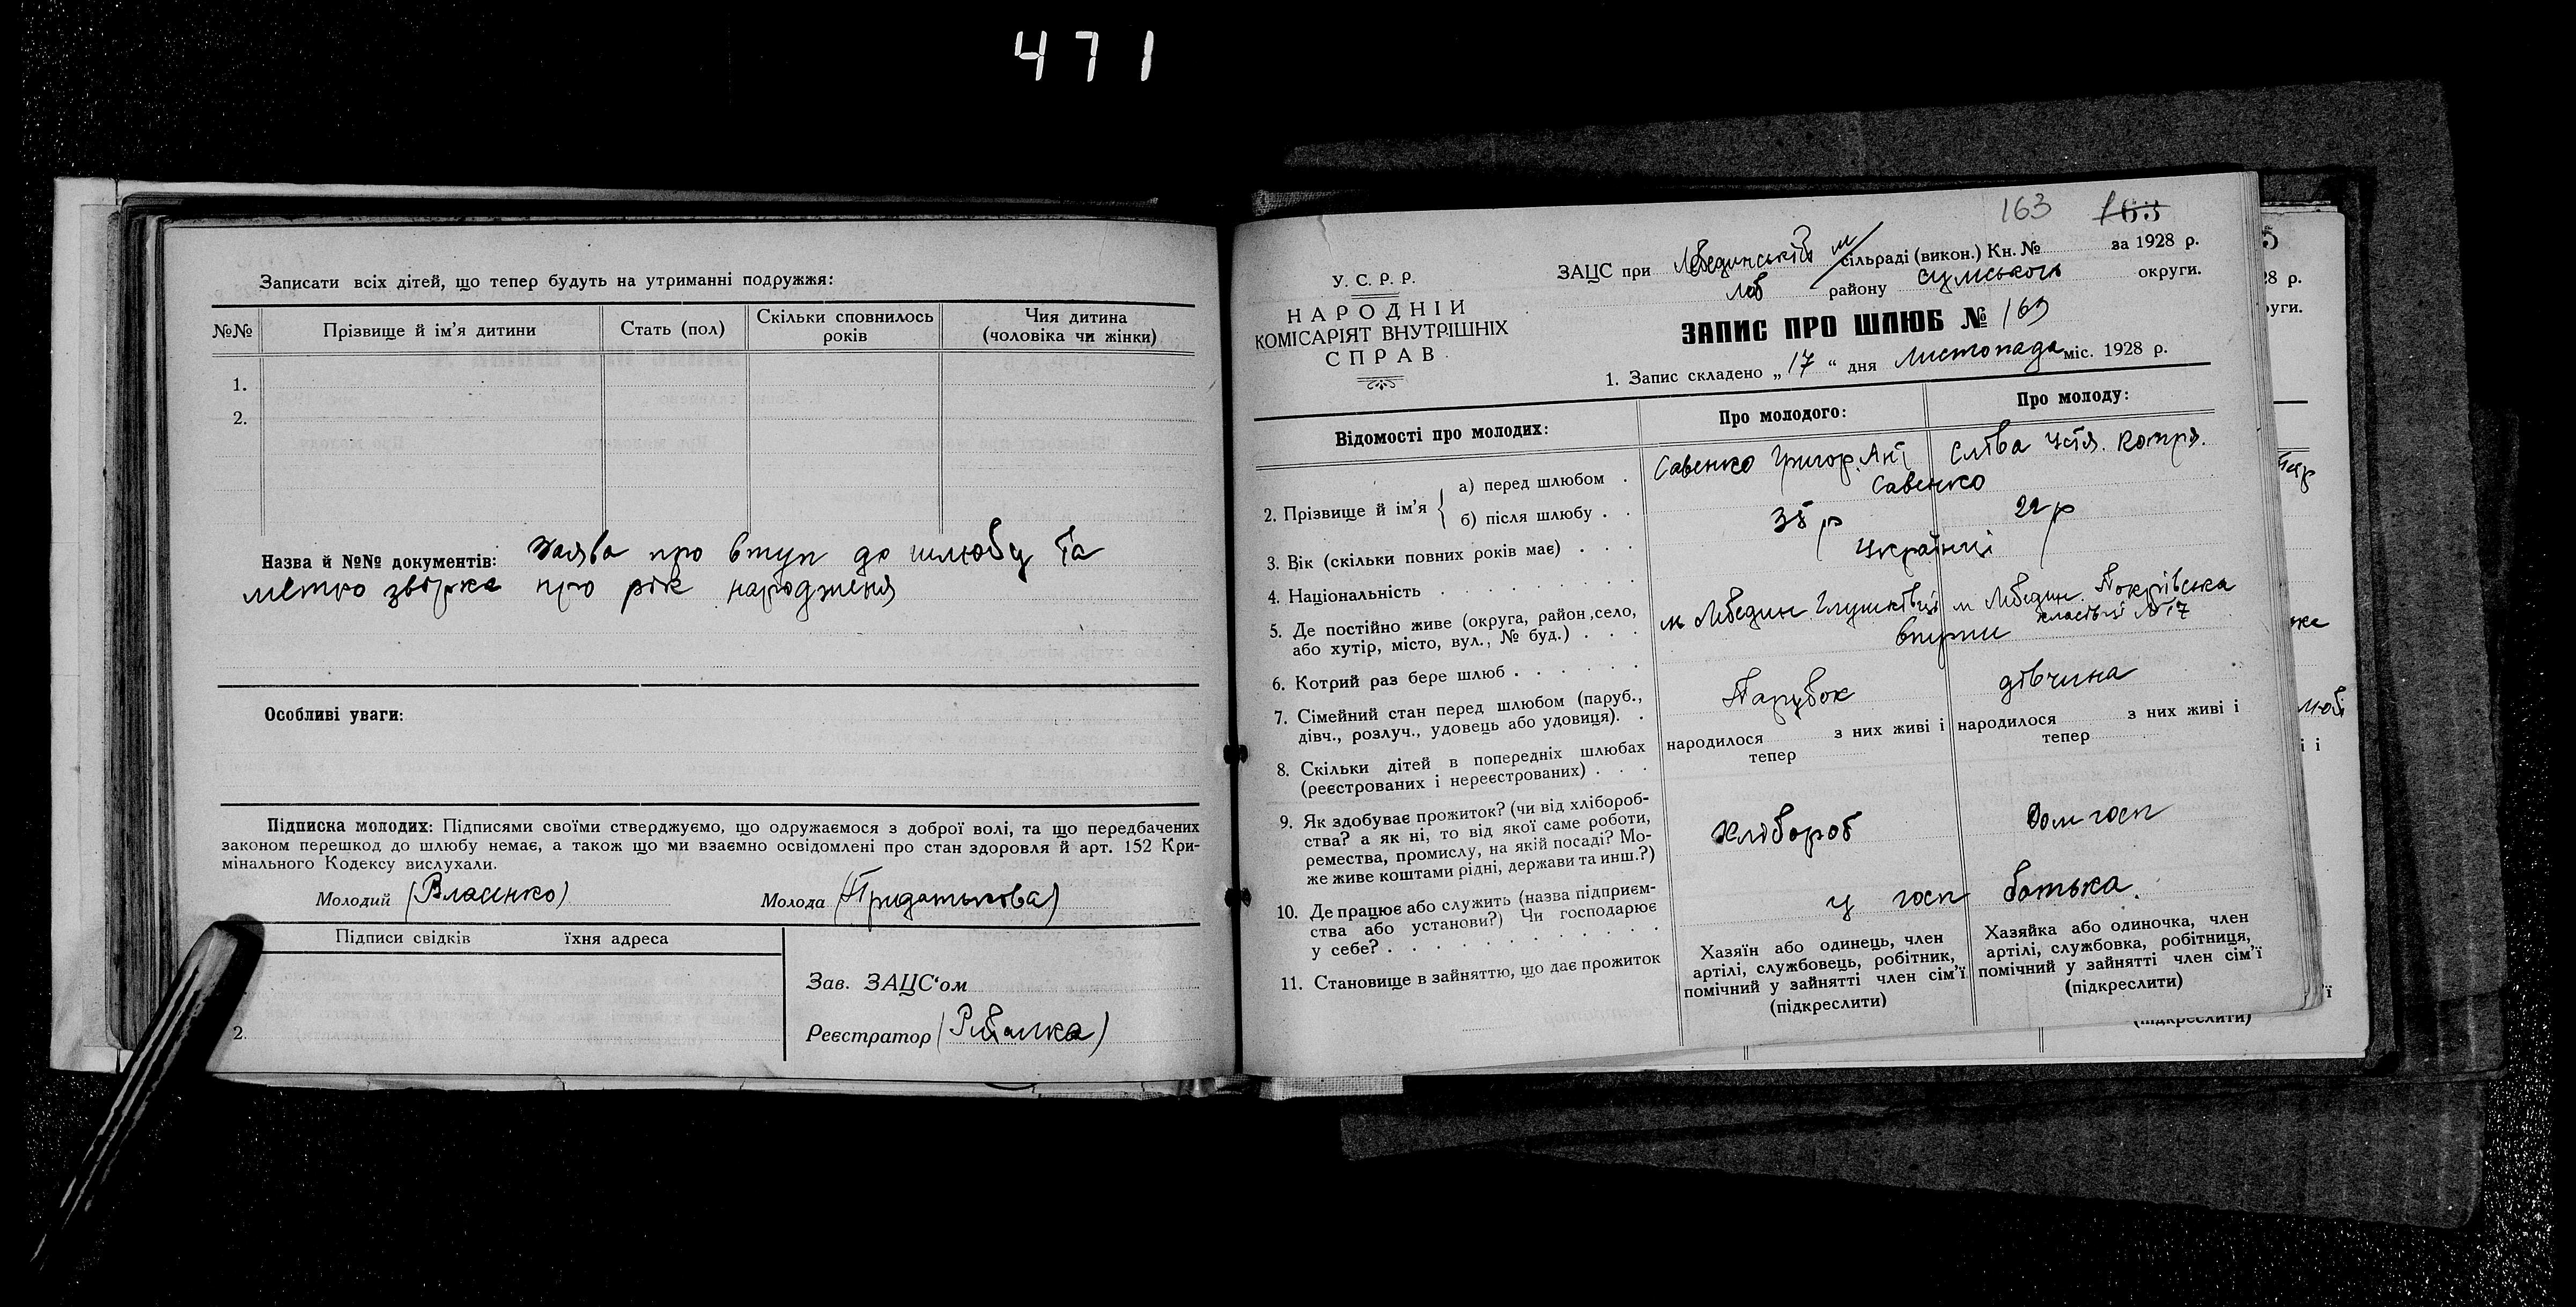 471
Записати всіх дітей, що тепер будуть на утриманні подружжя:
№№ Прізвище й ім'я дитини Стать (пол) Скільки сповнилось років Чия дитина (чоловіка чи жінки)
1.
2.
Назва й №№ документів: Заява про вступ до шлюбу та
метро звірка про рік народження
Особливі уваги:
Підписка молодих: Підписями своїми стверджуємо, що одружаємося з доброї волі, та що передбачених
законом перешкод до шлюбу немає, а також що ми взаємно освідомлені про стан здоровля й арт. 152 Кри-
мінального Кодексу вислухали.
Молодий (Власенко) Молода (Придатькова)
Підписи свідків їхня адреса
2.
Зав. ЗАЦС'ом
Реєстратор (Рибалка)
163 163
У. С. Р. Р.
НАРОДНІЙ
КОМІСАРІЯТ ВНУТРІШНІХ
СПРАВ
ЗАЦС при Лебединській м сільраді (викон.) Кн. № за 1928 р.
Леб району Сумського округи.
ЗАПИС ПРО ШЛЮБ № 163
1. Запис складено „ 17 “ дня Листопада міс. 1928 р.
Відомості про молодих: Про молодого: Про молоду:
2. Прізвище й ім'я
а) перед шлюбом . Савенко Григор. Ант Сліва Устя.
б) після шлюбу . . Савенко
3. Вік (скільки повних років має) . . . 38 р 22 р
4. Національність . . . . . . . Українці
5. Де постійно живе (округа, район, село,
або хутір, місто, вул., № буд.) . . .
м Лебедин м Лебедин. Покрівська
№ 17
6. Котрий раз бере шлюб . . . . . . вперше
7. Сімейний стан перед шлюбом (паруб.,
дівч., розлуч., удовець або удовиця). .
Парубок дівчина
8. Скільки дітей в попередніх шлюбах
(реєстрованих і нереєстрованих) . . .
народилося з них живі і
тепер
народилося з них живі і
тепер
9. Як здобуває прожиток? (чи від хлібороб-
ства? а як ні, то від якої саме роботи,
ремества, промислу, на якій посаді? Мо-
же живе коштами рідні, держави та инш.?)
Хлібороб Дом госп
10. Де працює або служить (назва підприєм-
ства або установи?) Чи господарює
у себе? . . . . . . . . . . . .
у госп батька.
11. Становище в зайняттю, що дає прожиток
Хазяїн або одинець, член
артілі, службовець, робітник,
помічний у зайнятті член сім'ї
(підкреслити)
Хазяйка або одиночка, член
артілі, службовка, робітниця,
помічний у зайнятті член сім'ї
(підкреслити)
5
28 р.
руги.
(підкреслити)